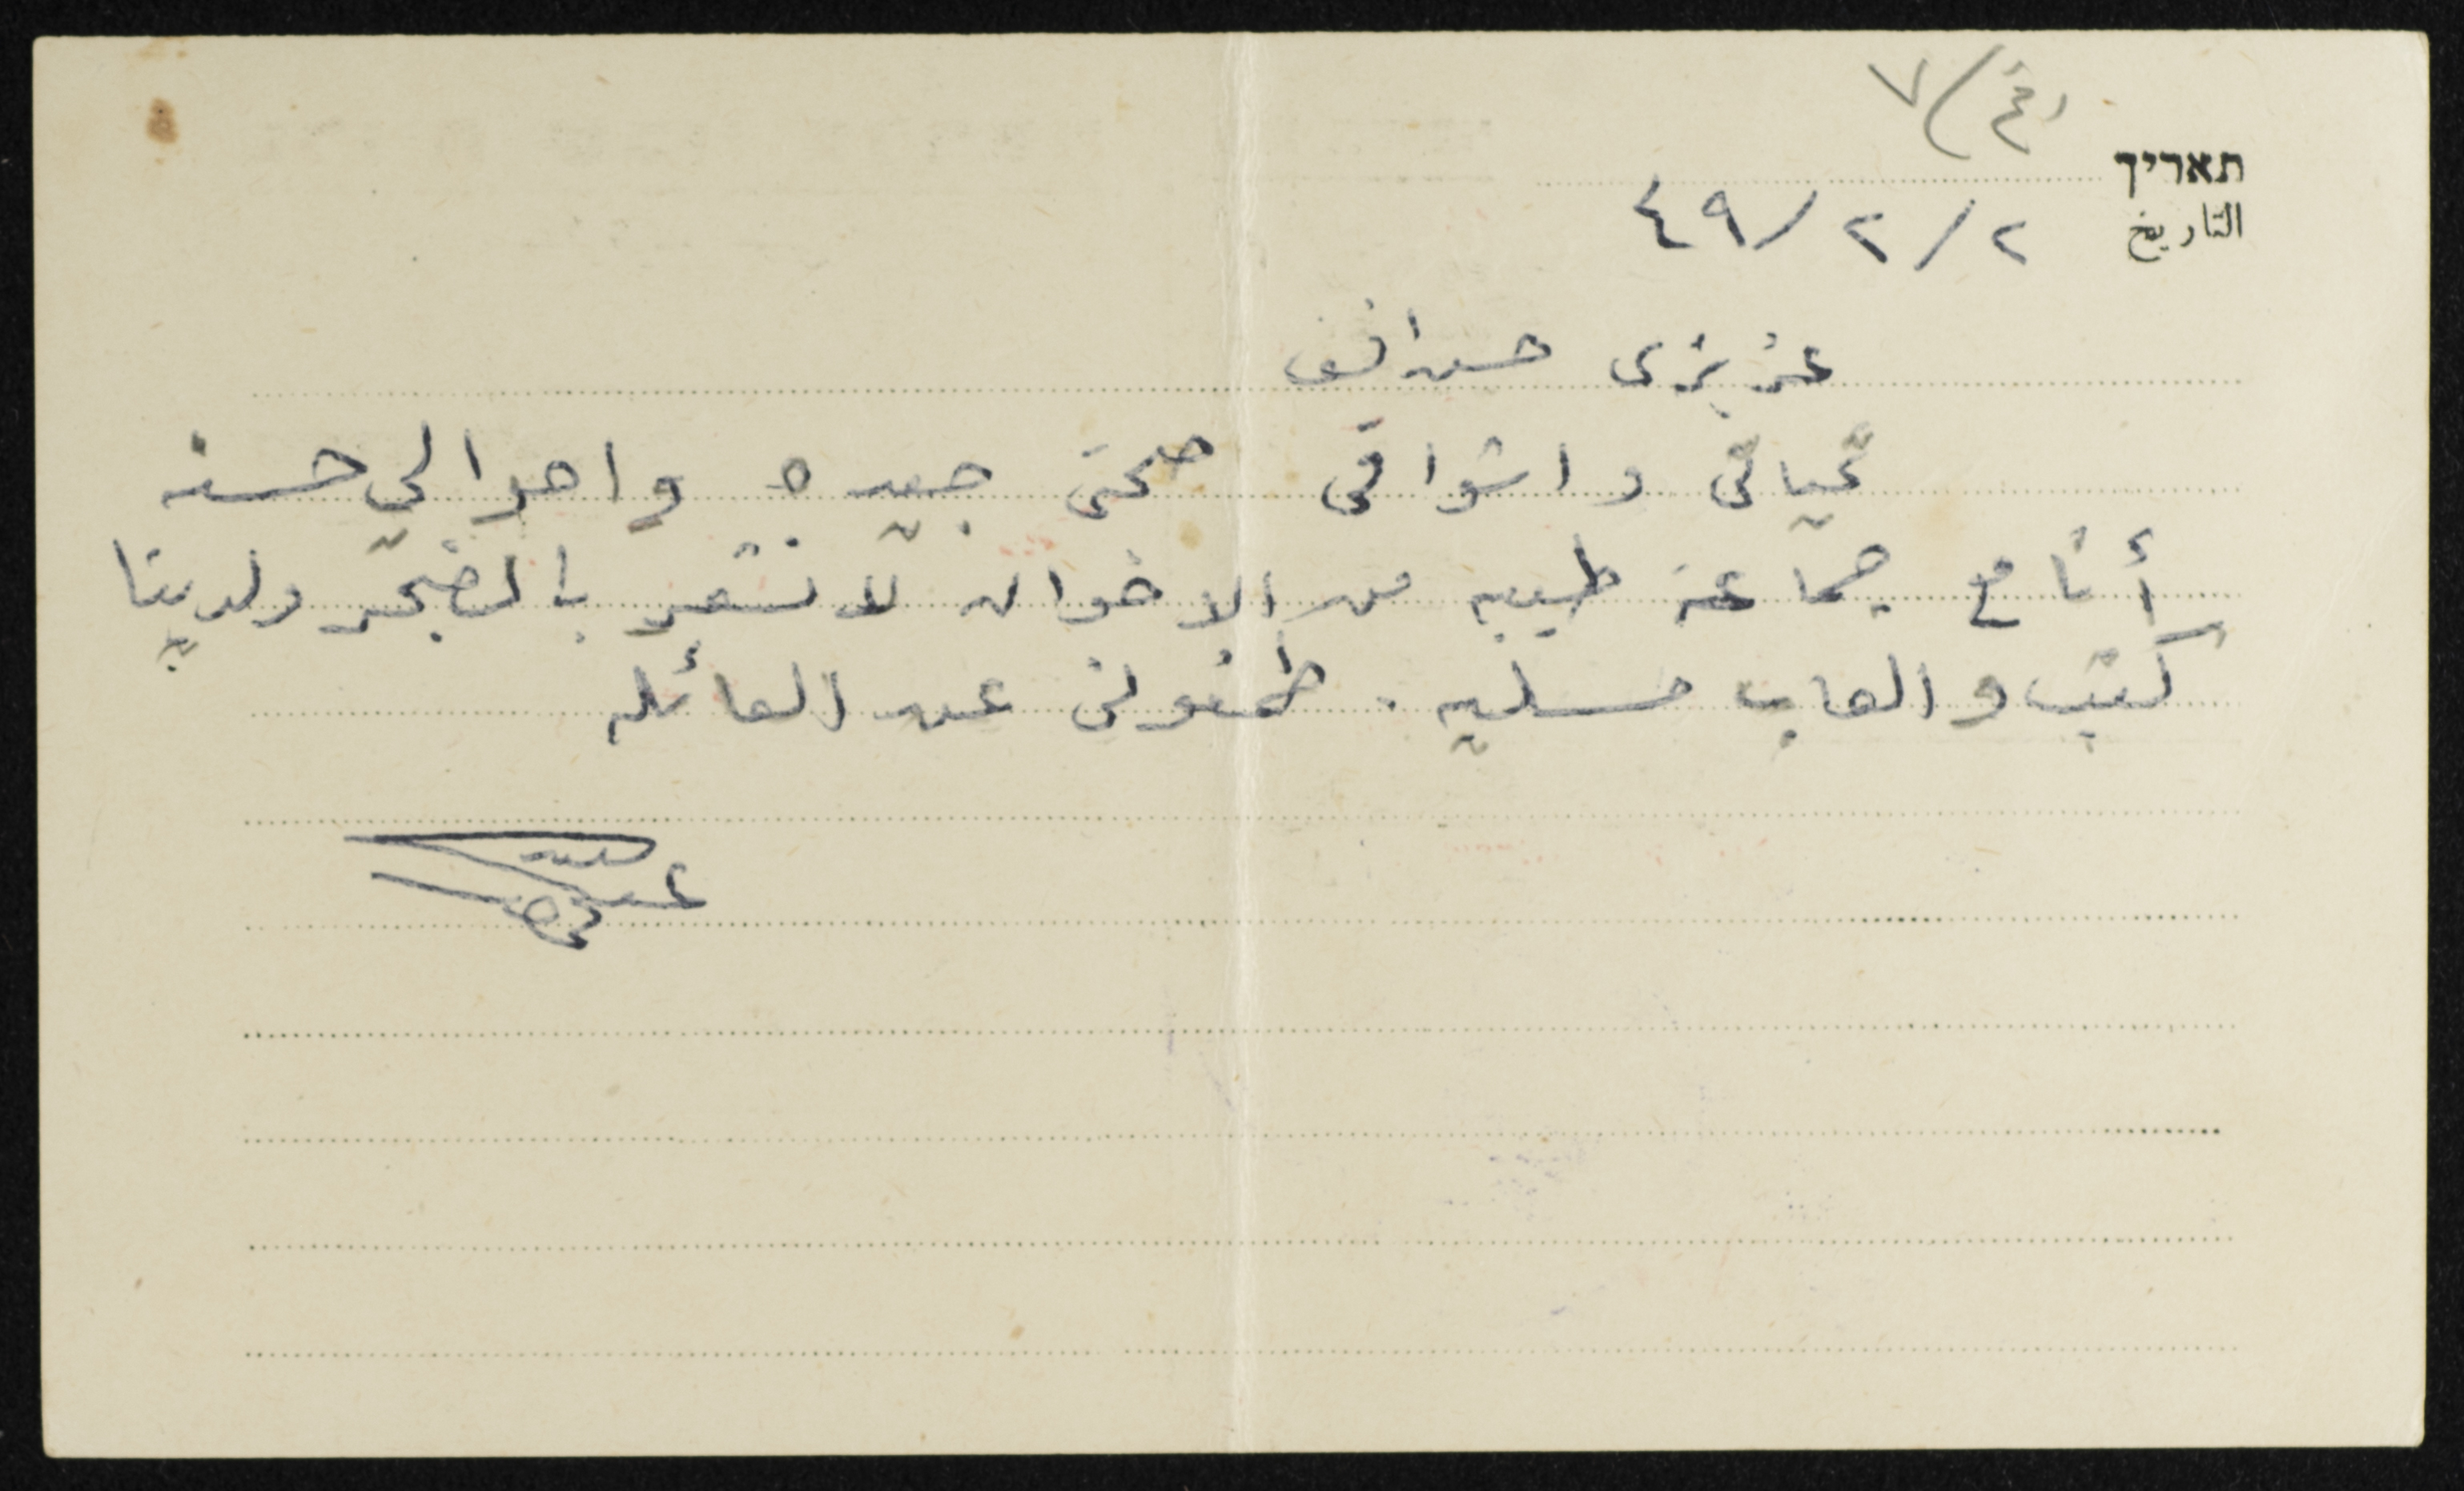 ٧/٤
תאריך
التاريخ ٢/٢/٤٩
عزيزى حسن
تحياتى واشواقى صحتى جيده واحوالي حسنه
أنا مع جماعة طيبه من الاخوان لا نشعر بالضجر ولدينا
كتب والعاب مسليه. طمنونى عن العائله